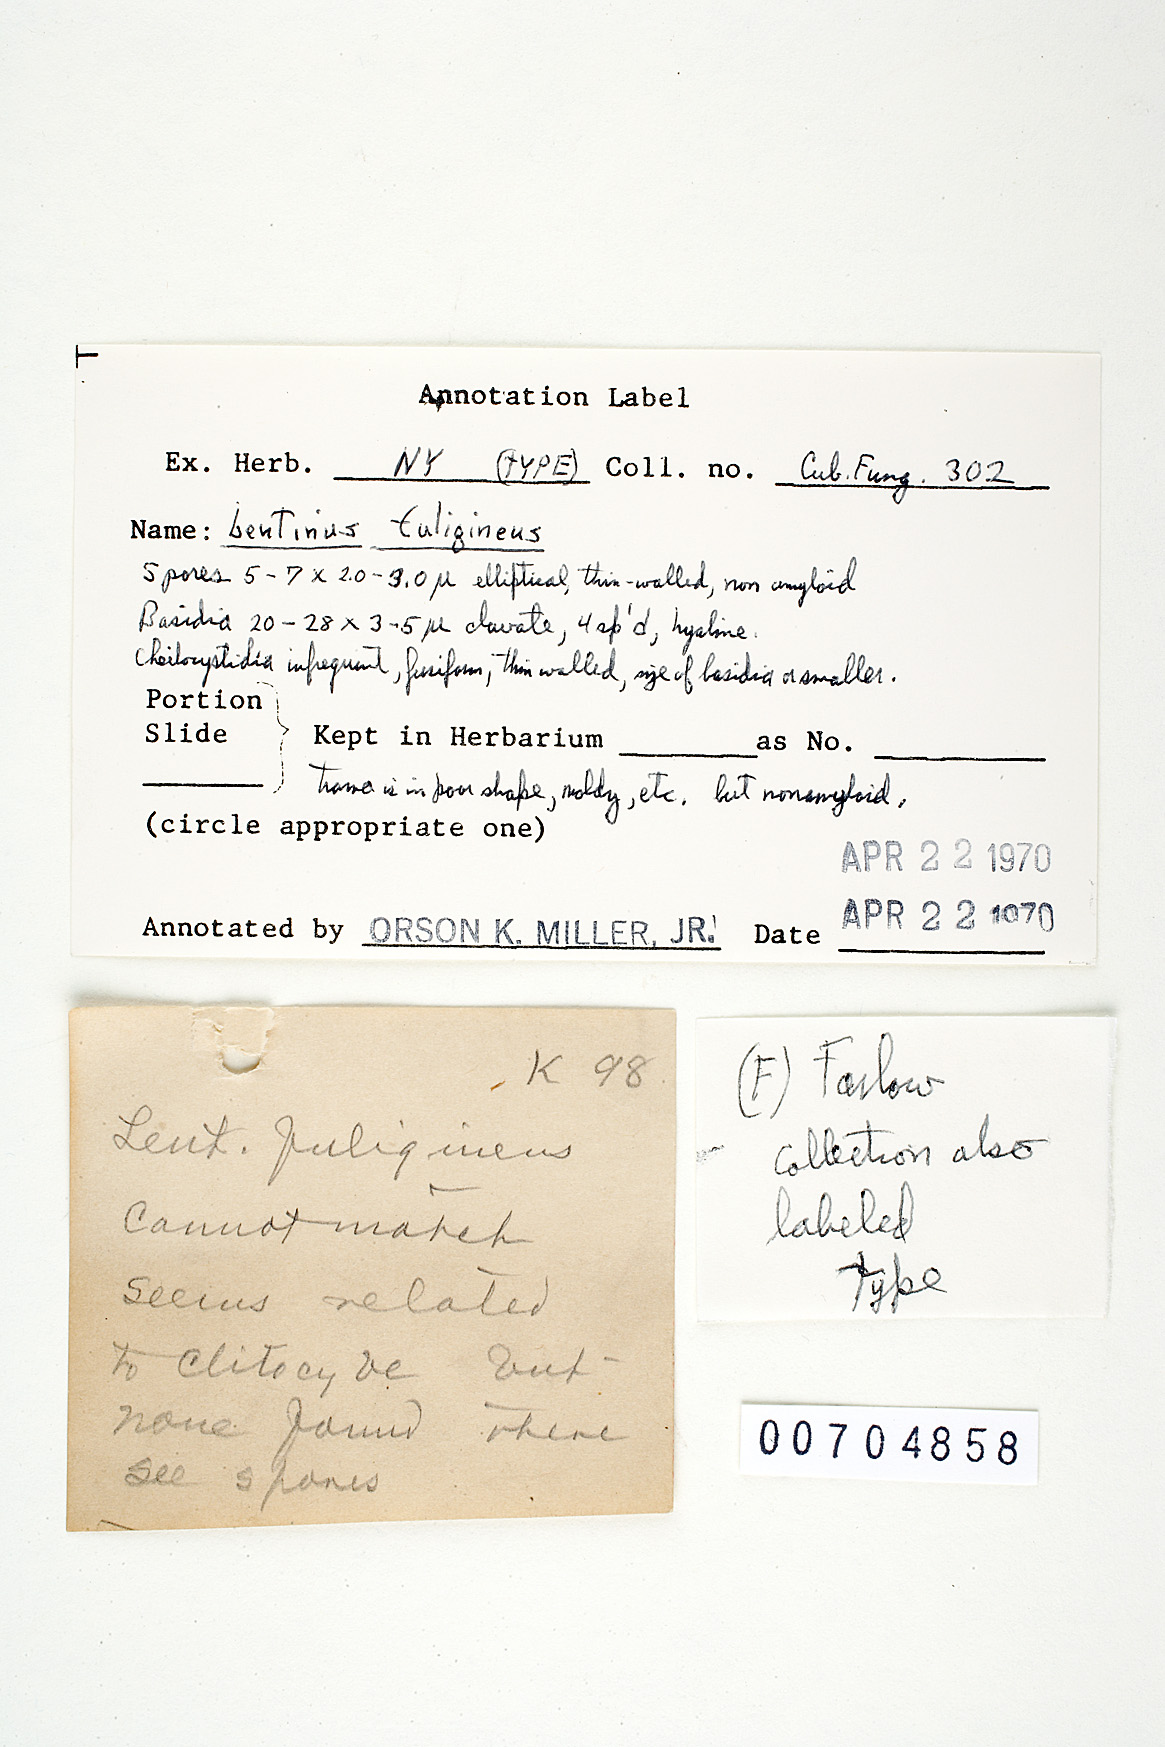 Annotation Label
Ex. Herb. NY (TYPE) Coll. no. Cub. Fung. 302
Name: Lentinus fuligineus
Spores 5-7 x 2.0-3.0 µ elliptical, thin-walled, non amyloid
Basidia 20-28 x 3-5 µ clavate, 4 sp'd, hyaline.
Cheilocystidia infrequent, fusiform, thin walled, size of basidia or smaller.
Portion
Slide Kept in Herbarium as No.
trama is in poor shape, moldy, etc. but nonamyloid.
(circle appropriate one)
APR 22 1970
Annotated by ORSON K. MILLER, JR. Date APR 22 1970
K 98
Lent. fuligineus
Cannot match
Seems related
to Clitocybe but
none found there
See spores
(F) Farlow
collection also
labeled
type
00704858